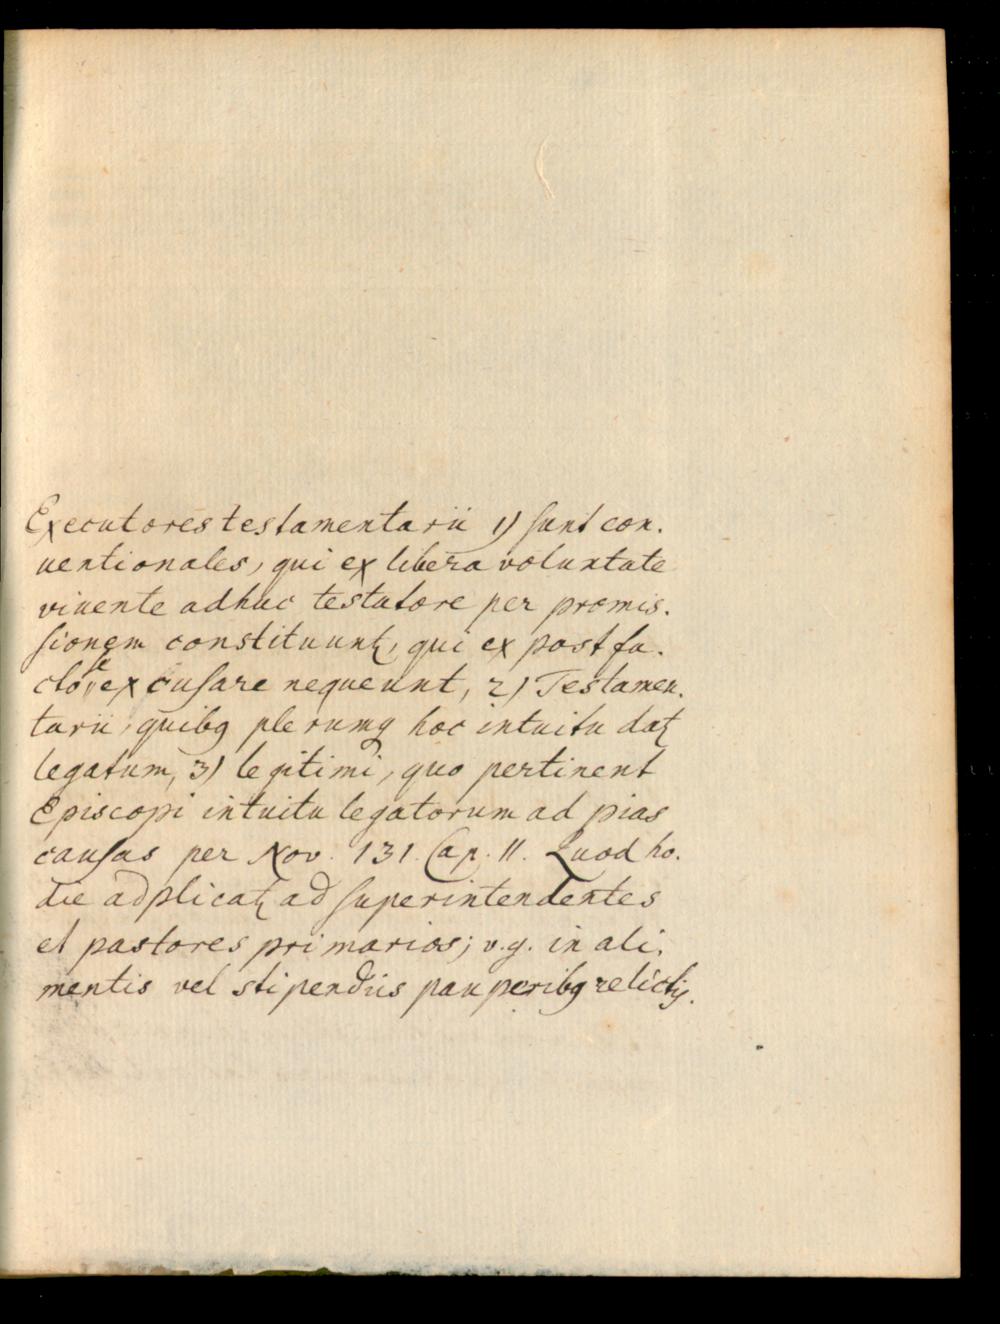 Executores testamentarii 1) sunt con.
uentionales, qui ex libera voluntate
viuente adhuc testatore per promis.
sionem constituunt, qui ex post fa.
cto se excusare nequeunt, 2) Testamen.
tarii, quibq plerumq hoc intuitu datꝛ
legatum, 3) legitimi, quo pertinent
Episcopi intuitu legatorum ad pias
causas per Nov. 131. Cap. 11. Quod ho.
die adplicatꝛ ad superintendentes
et pastores primarios; v.g. in ali.
mentis vel stipendiis pauperibq relictis.